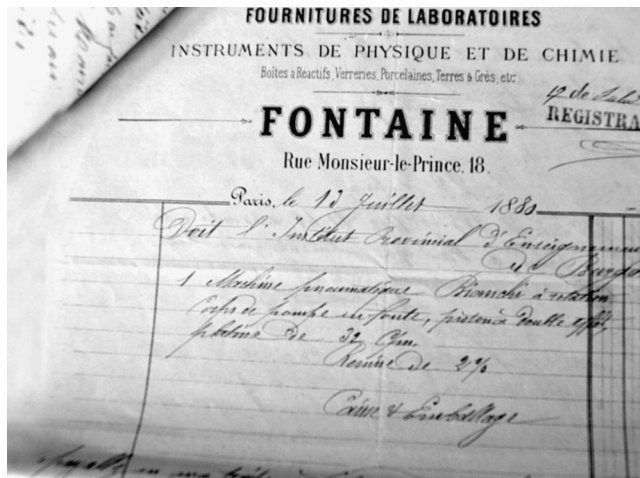 FOURNITURES DE LABORATOIRES
INSTRUMENTS DE PHYSIQUE ET DE CHIMIE
Boîtes a Réactifs, Verreries, Porcelaines, Terres & Grès, etc
REGISTRA
FONTAINE
Rue Monsieur-le-Prince, 18.
Paris, le 13 Juillet 1880
Doit l'Institut Provincial d'Enseignement
de Burgos
1 Machine pneumatique Bianchi à rotation
Corps de pompe en fonte, piston à double effet,
platine de 32 c/m.
Remise de 2%
Caisse & Emballage